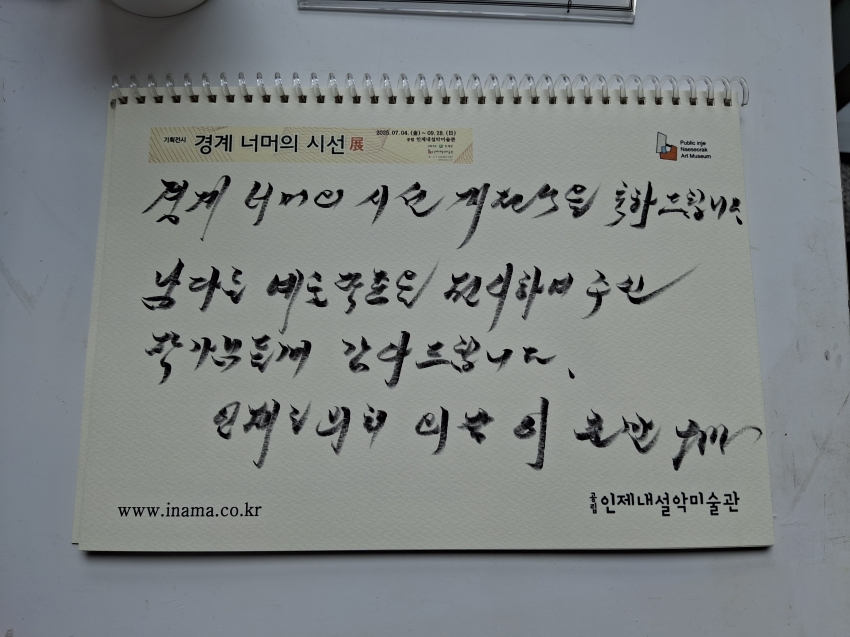 기획전시 경계 너머의 시선 展
2025. 07. 04. (金) ~ 09. 28. (日)
공립 인제내설악미술관
Public Inje
Naeseorak
Art Museum
경계 너머의 시선 개전식을 축하드립니다
남다른 예술작품을 전시하여 주신
작가님들께 감사드립니다.
인제군의회 의원 이
www.inama.co.kr
공립 인제내설악미술관